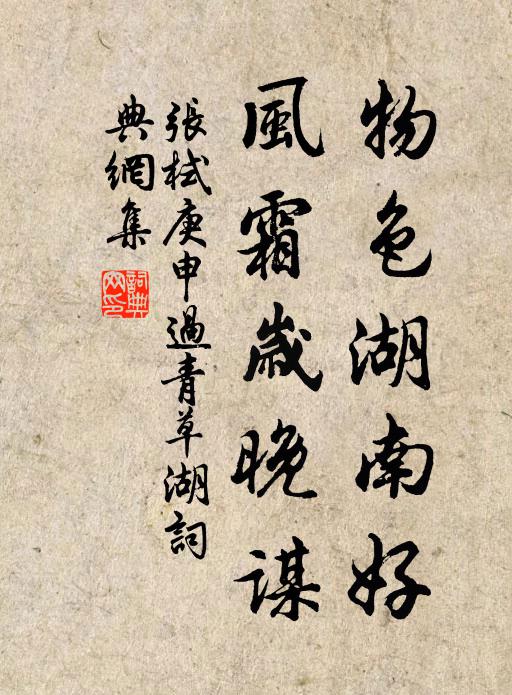 物色湖南好
風霜歲晚謀
張栻庚申過青草湖詞
典網集
詞典網印